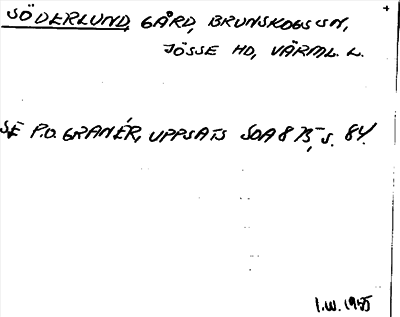 SÖDERLUND, GÅRD, BRUNSKOGS SN,
JÖSSE HD, VÄRML. L.
SE P.O. GRANÉR, UPPSATS SOA 8 75, S. 84.
I.W. 1955